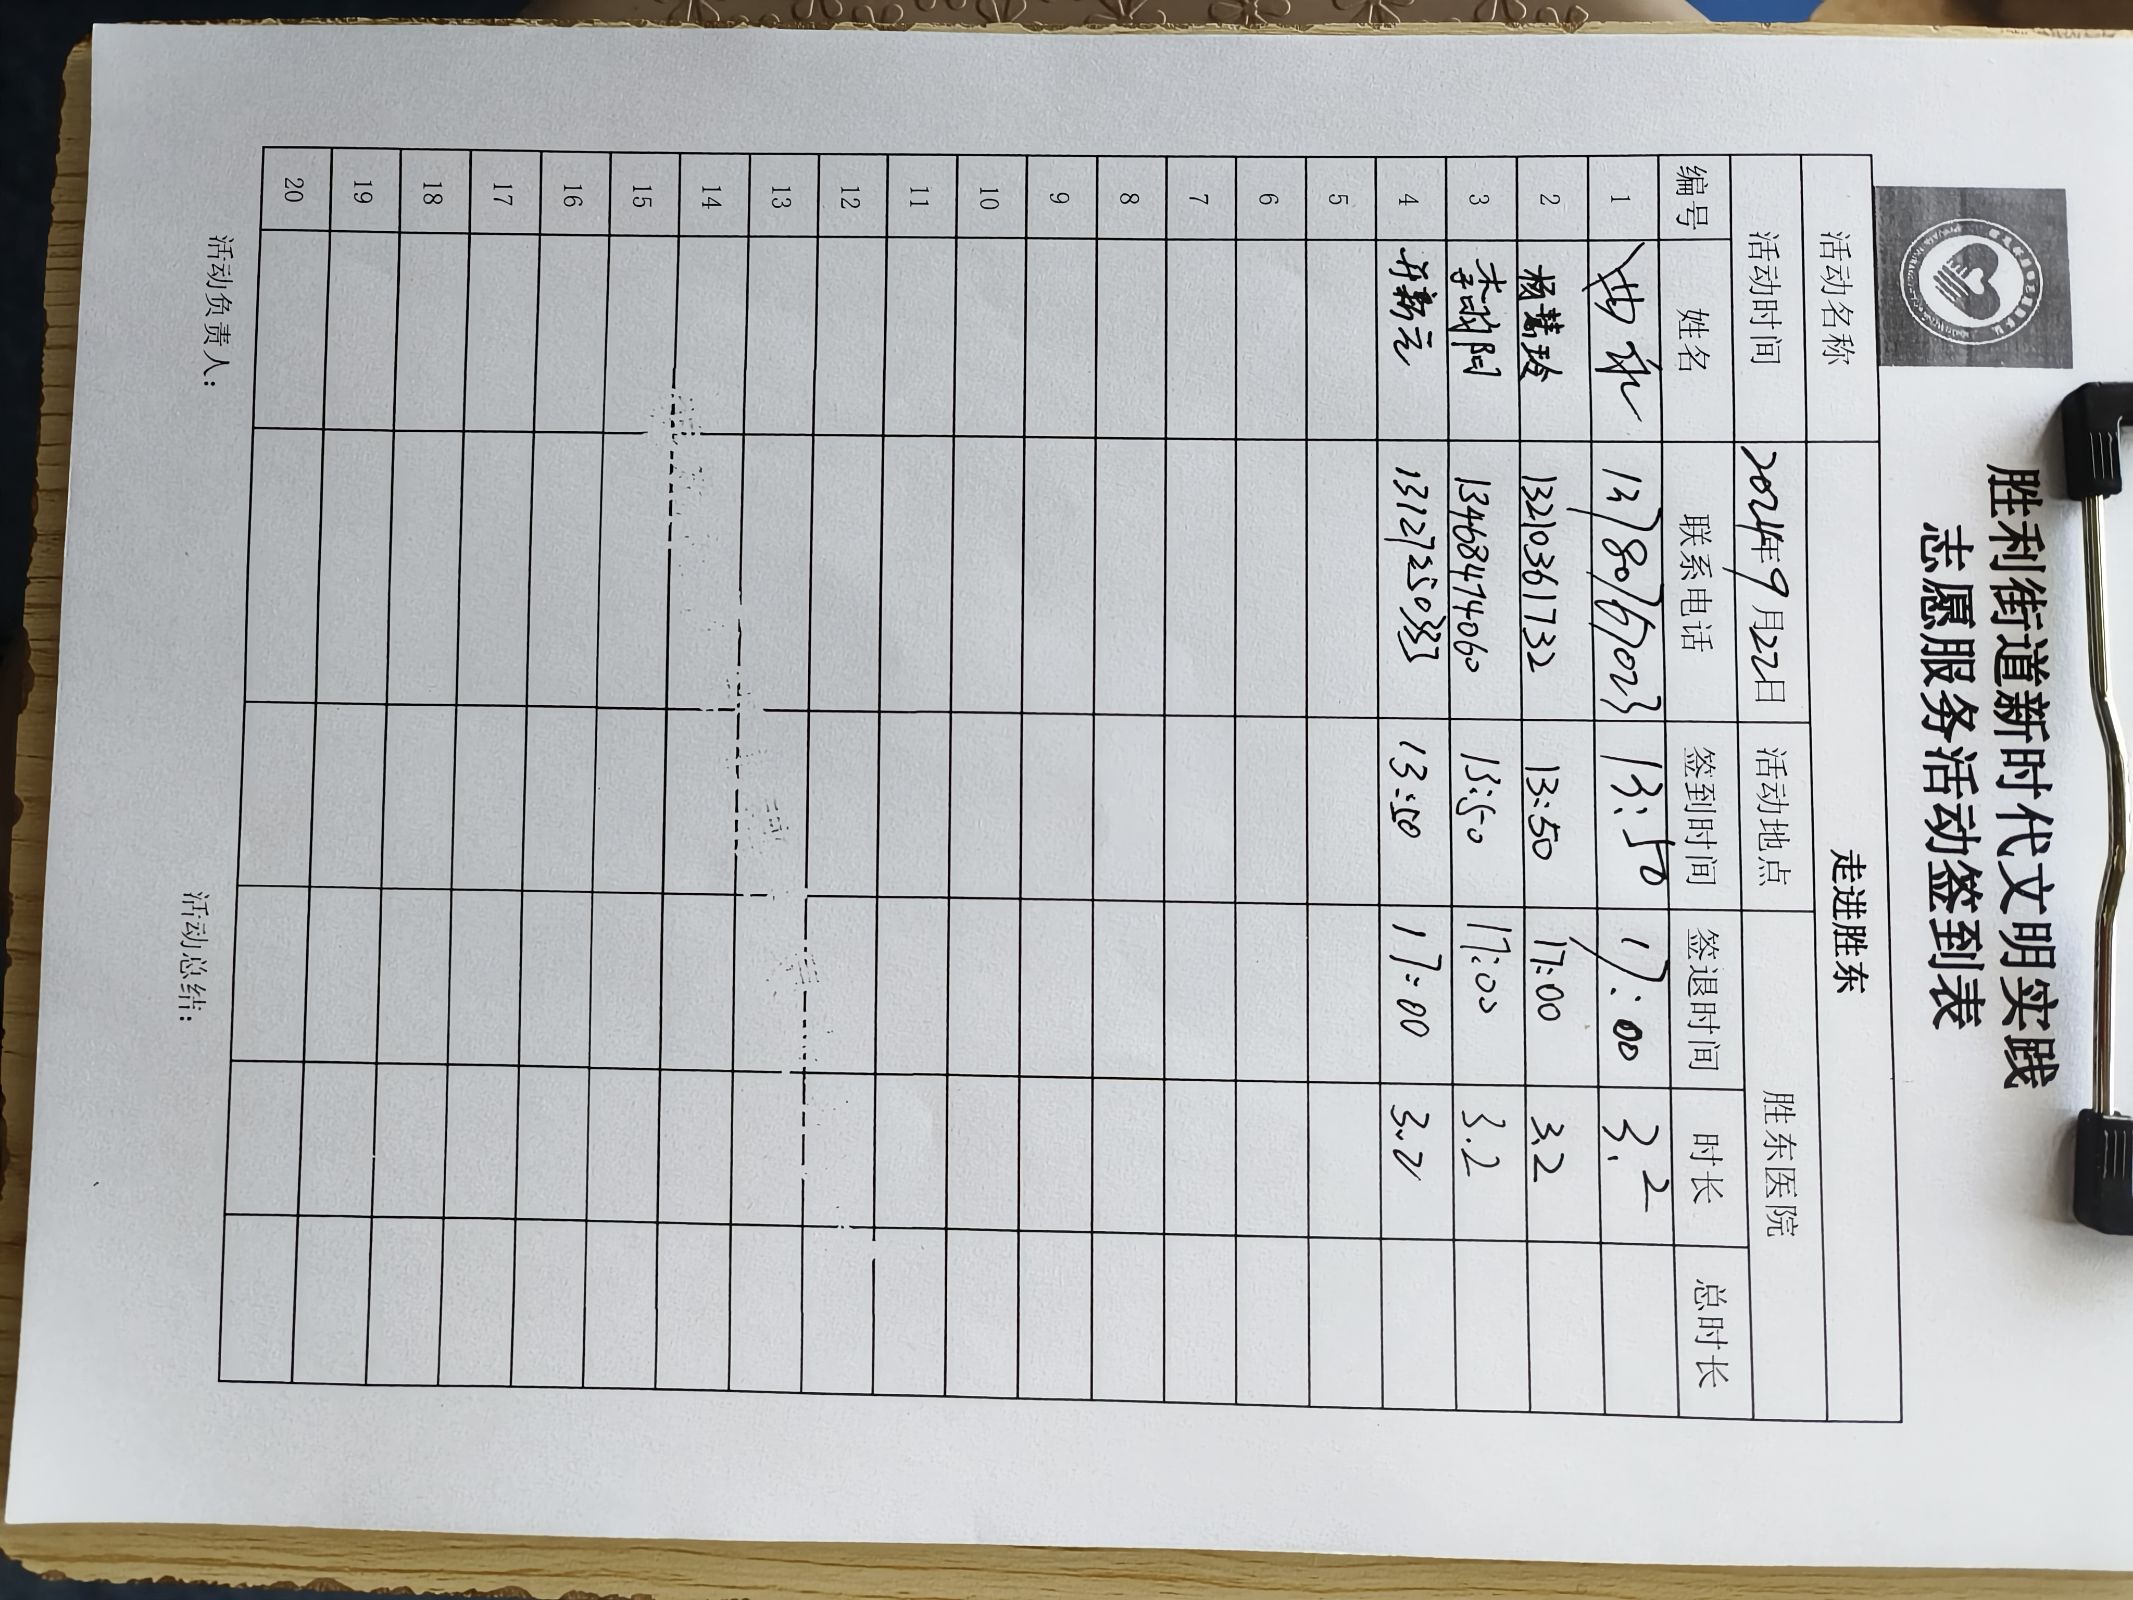 胜利街道新时代文明实践
志愿服务活动签到表
活动名称 走进胜东
活动时间 2024年9月22日 活动地点 胜东医院
编号 姓名 联系电话 签到时间 签退时间 时长 总时长
1 13780767023 13:50 17:00 3.2
2 杨慧玲 13210361732 13:50 17:00 3.2
3 13468474060 13:50 17:00 3.2
4 13127250333 13:50 17:00 3.2
5
6
7
8
9
10
11
12
13
14
15
16
17
18
19
20
活动负责人： 活动总结：